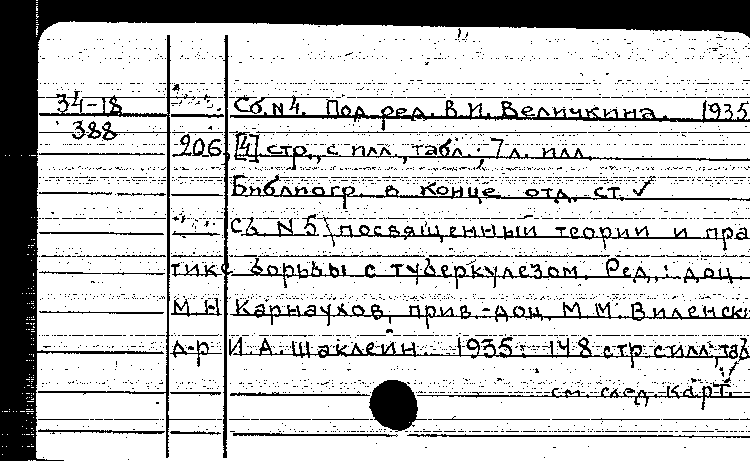 34-18 Сб. N 4. Под ред. В. И. Величкина. 1935
388
206, [4] стр., с илл., табл.; 7 л. илл.
Библиогр. в конце отд. ст. ✓
Сб. N 5\посвященный теории и пра
тике борьбы с туберкулезом. Ред.: доц.
М Н Карнаухов, прив.-доц. М. М. Виленски
д-р И. А. Шаклеин. 1935. 148 стр с илл; таб
см. след. карт.